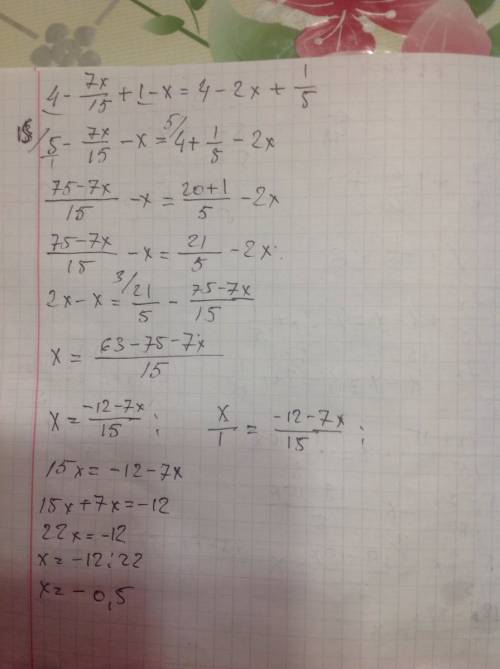 4 - 7x/15 + 1 - x = 4 - 2x + 1/5
15/ 5/1 - 7x/15 - x = 5/ 4 + 1/5 - 2x
75-7x/15 - x = 20+1/5 - 2x
75-7x/15 - x = 21/5 - 2x.
2x - x = 3/ 21/5 - 75-7x/15
x = 63-75-7x/15
x = -12-7x/15 ; x/1 = -12-7x/15 ;
15x = -12-7x
15x+7x=-12
22x=-12
x= -12:22
x= - 0,5